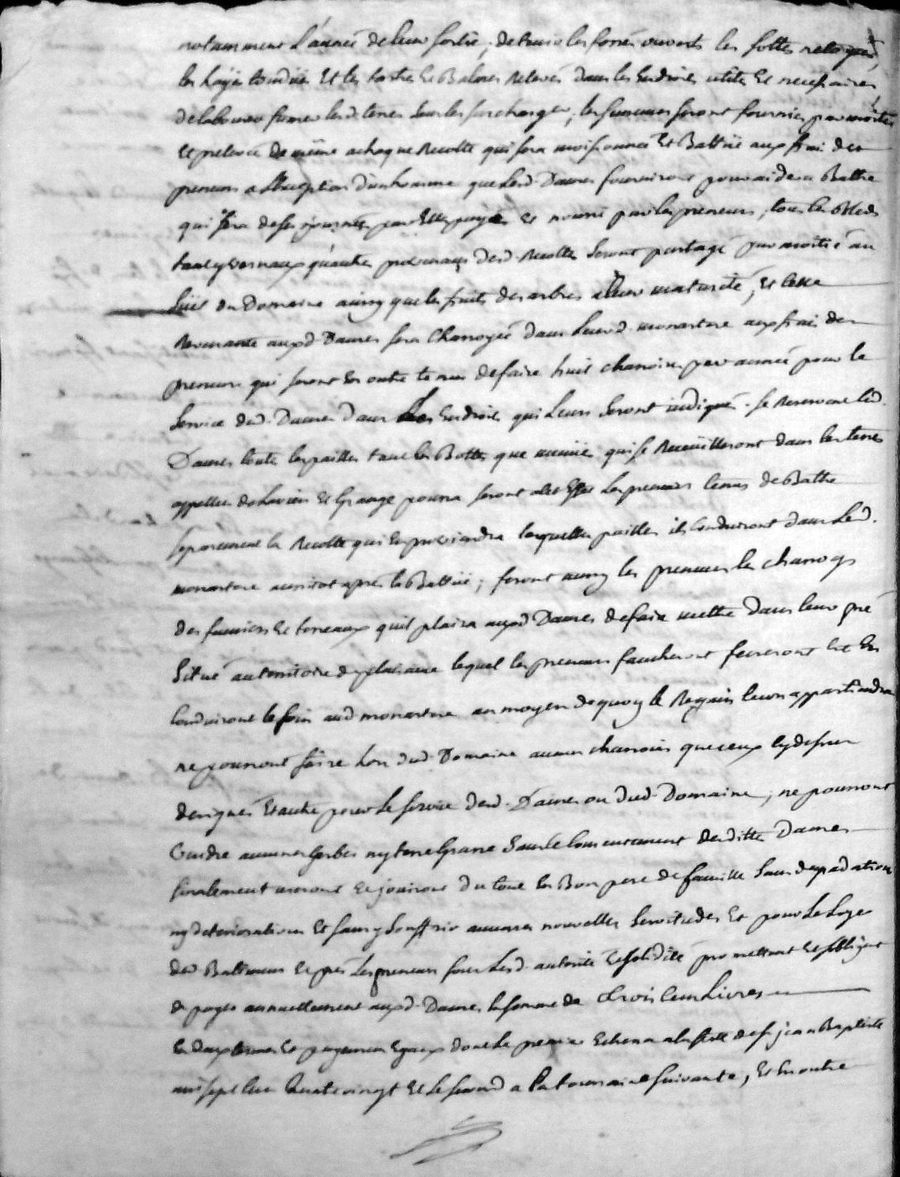 notamment L'année de leur sortie, de tenir les fossés ouverts les
les hayes tondües Et les Et Relevés dans les Endroits utiles Et necessaires
de labourer fumer lesd terres sans les surcharger, les semences seront fournies par moitié
Et prelevé de même a chaque Recolte qui sera moissonnée Et Battüe aux frais des
preneurs a L'exception d'un homme que lesd Dames fourniront pour aider a Battre
qui sera de ses journées par Elles payé Et nourri par les preneurs, tous les Bleds
tant yvernaux qu'autres provenans desd Recoltes seront partagé par moitié au
du Domaine ainsy que les fruits des arbres a leur maturité, Et celle
Revenante auxd Dames sera Charroyée dans leurd monastere aux frais des
preneurs qui seront En outre tenus de faire huit charrois par année pour le
service desd Dames dans les Endroits qui leurs seront indiqué. se Reservent lesd
Dames toutes les pailles tant les Bottes que menües qui se Recueilleront dans les terres
appellés Et Grange seront a cet Effet les preneurs tenus de Battre
separement la Recolte qui En proviendra lesquelles pailles ils Conduiront dans led.
monastere aussitot aprés la Battüe; feront aussy les preneurs les charroys
des fumiers Et terreaux qu'il plaira auxd Dames de faire mettre dans leur pré
situé au territoire de plaisance lequel les preneurs faucheront feneront Et En
Conduiront le foin aud monastere au moyen de quoy le Regain leurs appartiendra
ne pourront faire hors dud Domaine aucuns charrois que ceux cy dessus
designés Et autres pour le service desd. Dames ou dud Domaine; ne pourront
vendre aucunes Gerbes ny terre Grasse sans le Consentement desdittes Dames
finalement useront Et jouiront du tout En Bon pere de famille sans degradation
ny deterioration Et sans y souffrir aucunes nouvelles servitudes Et pour le Loyer
des Batimens Et prés Les preneurs sous lesd. autorité Et solidité promettent Et s'obligent
de payer annuellement auxd. Dames la somme de Trois Cens Livres
En deux termes Et payemens Egaux dont le premier Echerra a la feste de st jean Baptiste
mil sept Cent Quatrevingt Et le second a la toussaint suivante, Et En outre